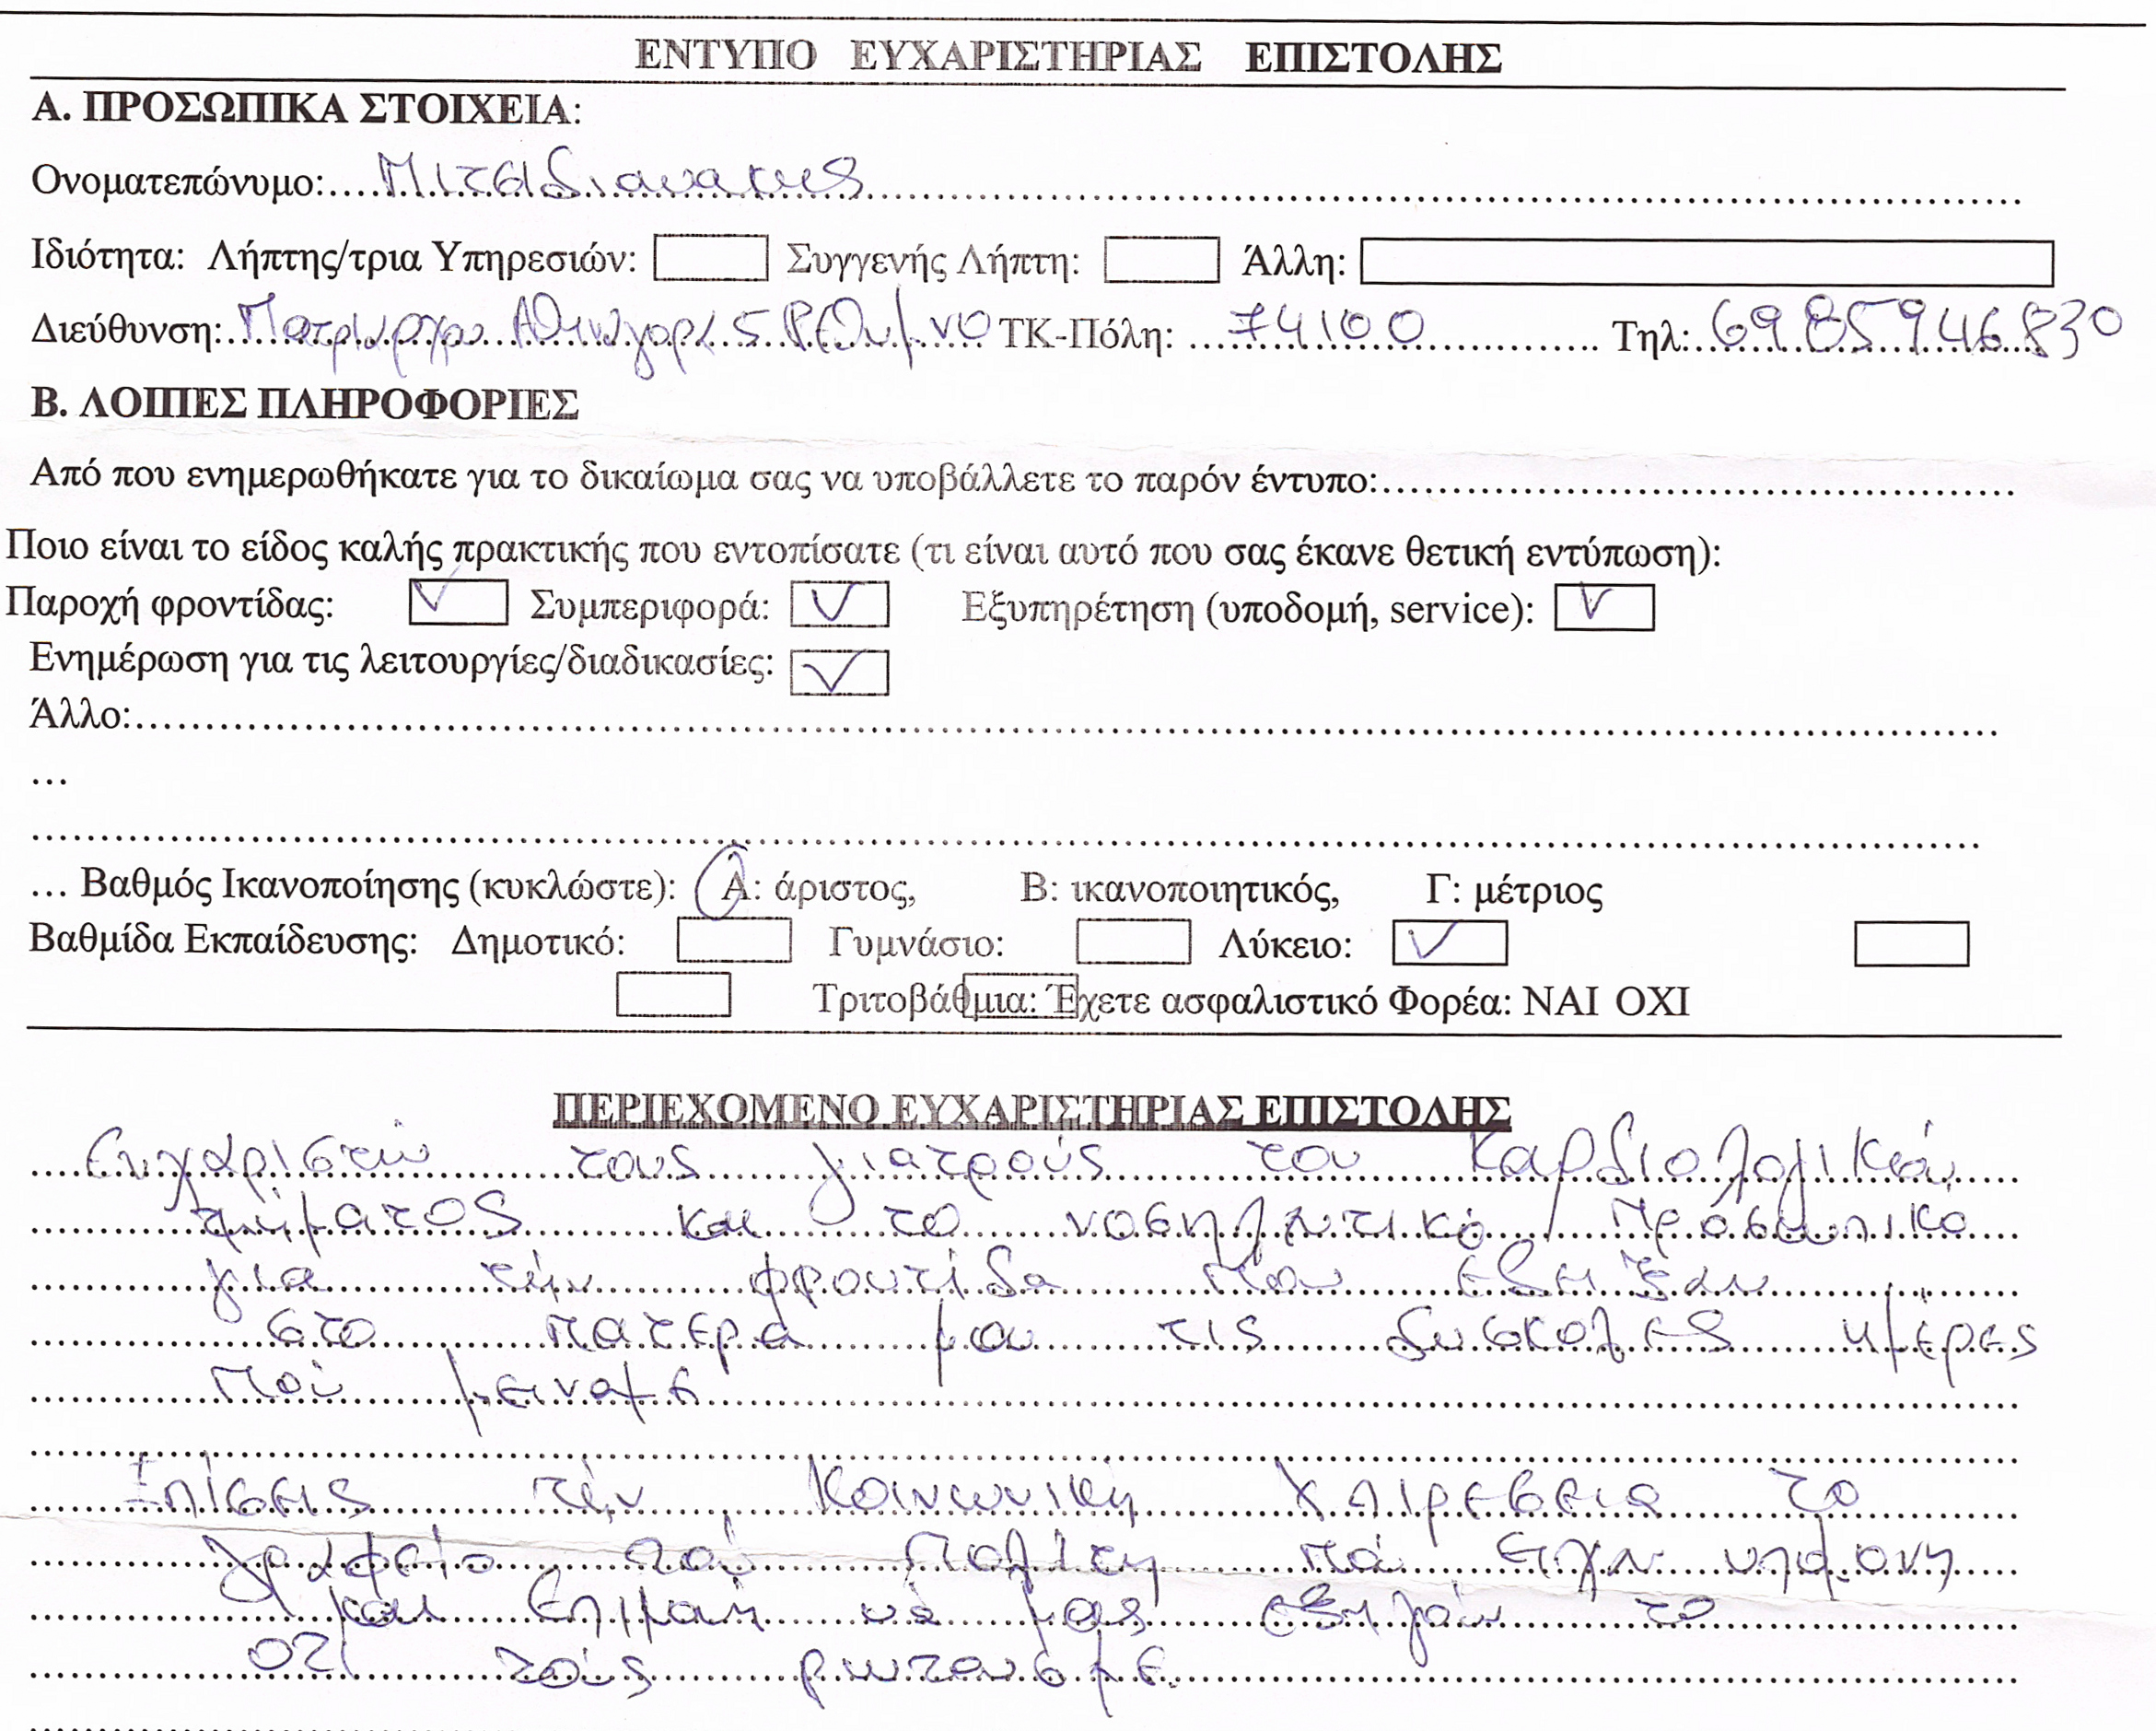 ΕΝΤΥΠΟ ΕΥΧΑΡΙΣΤΗΡΙΑΣ ΕΠΙΣΤΟΛΗΣ
Α. ΠΡΟΣΩΠΙΚΑ ΣΤΟΙΧΕΙΑ:
Ονοματεπώνυμο:....................
Ιδιότητα: Λήπτης/τρια Υπηρεσιών: Συγγενής Λήπτη: Άλλη:
Διεύθυνση: Πατριαρχου Αθηναγορα 5 Ρεθυμνο ΤΚ-Πόλη: 74100 Τηλ: 6985946830
Β. ΛΟΙΠΕΣ ΠΛΗΡΟΦΟΡΙΕΣ
Από που ενημερωθήκατε για το δικαίωμα σας να υποβάλλετε το παρόν έντυπο:....................
Ποιο είναι το είδος καλής πρακτικής που εντοπίσατε (τι είναι αυτό που σας έκανε θετική εντύπωση):
Παροχή φροντίδας: ✓ Συμπεριφορά: ✓ Εξυπηρέτηση (υποδομή, service): ✓
Ενημέρωση για τις λειτουργίες/διαδικασίες: ✓
Άλλο:....................
...
....................
... Βαθμός Ικανοποίησης (κυκλώστε): Α: άριστος, Β: ικανοποιητικός, Γ: μέτριος
Βαθμίδα Εκπαίδευσης: Δημοτικό: Γυμνάσιο: Λύκειο: ✓
Τριτοβάθμια: Έχετε ασφαλιστικό Φορέα: ΝΑΙ ΟΧΙ
ΠΕΡΙΕΧΟΜΕΝΟ ΕΥΧΑΡΙΣΤΗΡΙΑΣ ΕΠΙΣΤΟΛΗΣ
Ευχαριστώ τους γιατρούς του Καρδιολογικού
τμήματος και το νοσηλευτικό Πρόσωπικο
για τήν φροντίδα που εδειξαν
στο πατερα μου τις δυσκολες ημέρες
Πού μειναμε
Επίσεις τήν Κοινωνική Υπιρεσεια το
γραφείο τού Πολίτη πού ειχαν υπομονη
και επιμονή νά μας εξηγούν το
οτι τούς ρωτουσαμε.